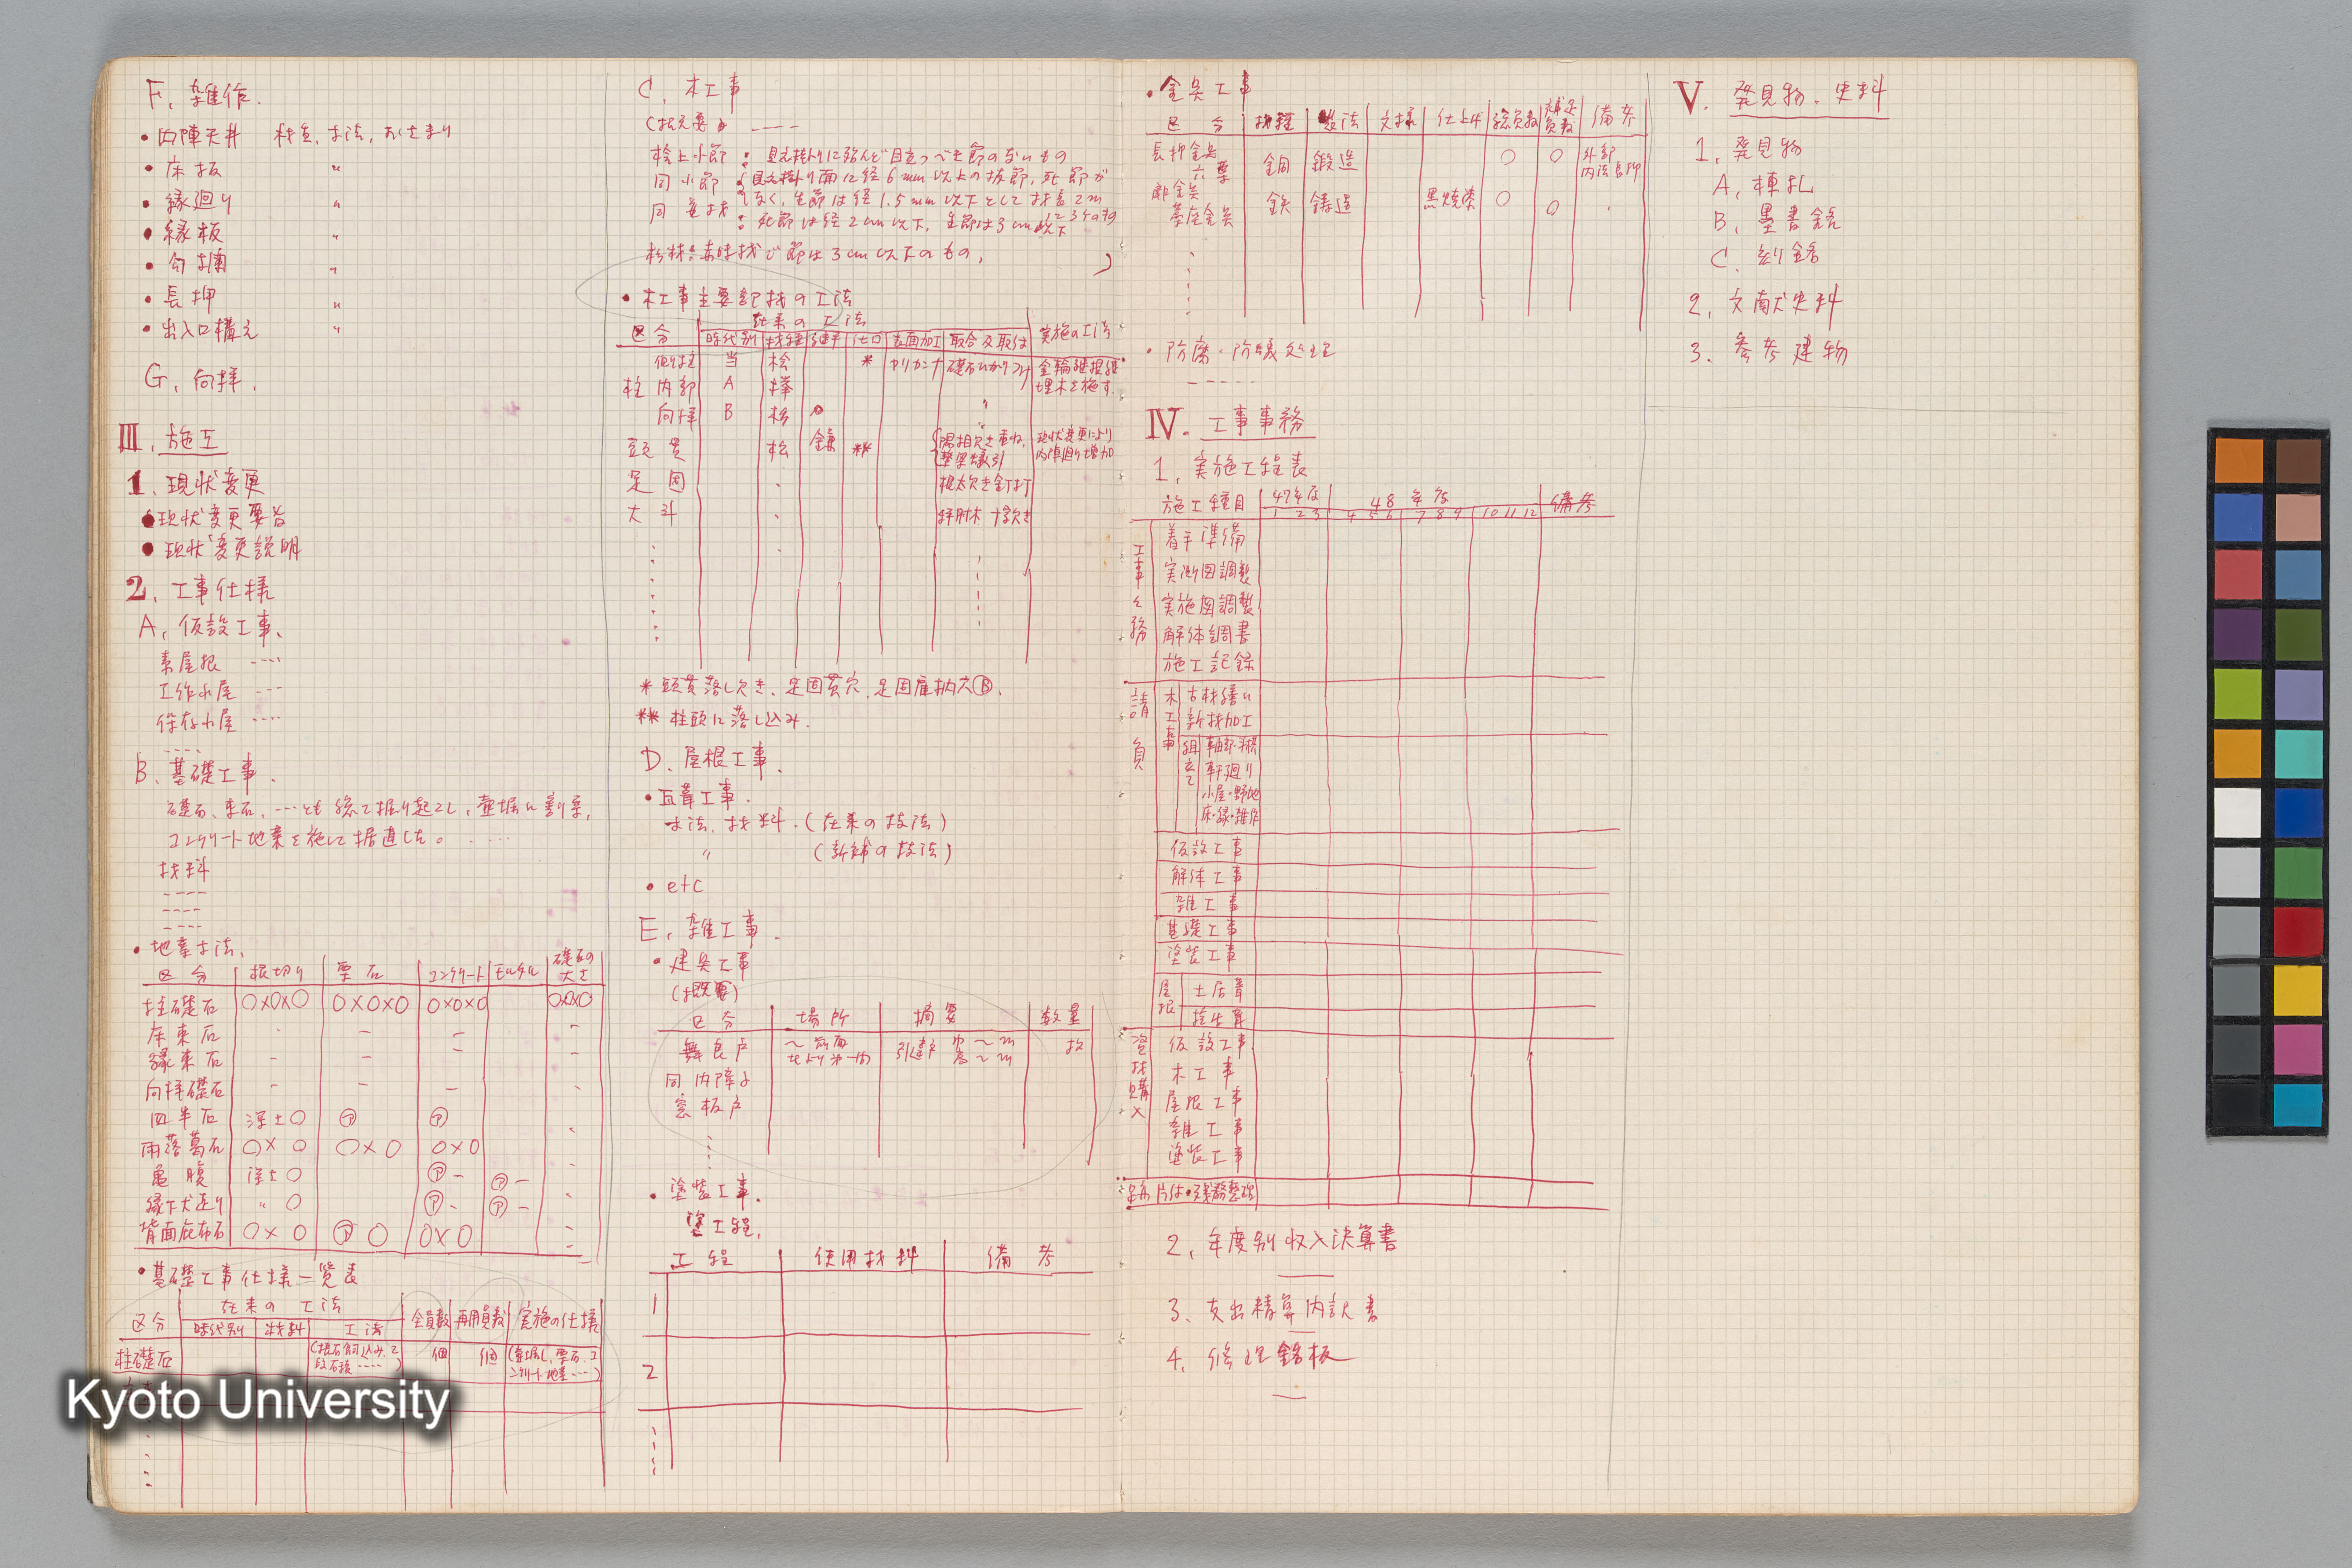 F. 雑作.
・内陣天井 材質, 寸法, おさまり
・床板 〃
・縁廻り 〃
・縁板 〃
・勾欄 〃
・長押 〃
・出入口構え 〃
G. 向拝.
Ⅲ. 施工
1. 現状変更
●現状変更要旨
●現状変更説明
2. 工事仕様
A. 仮設工事、
素屋根 ----
工作小屋 ---
保存小屋 ----
----
B. 基礎工事.
礎石、束石、…とも総て掘り起こし, 壷堀に割栗,
コンクリート地業を施して据直した。
材料
----
----
----
・地業寸法、
区分 根切り 栗石 コンクリート モルタル 礎石の大さ
柱礎石 ○×○×○ ○×○×○ ○×○×○ ○×○×○
床束石
縁束石
向拝礎石
四半石 漂土○ Ⓟ Ⓟ
雨落葛石 ○×○ ○×○ ○×○
亀腹 漂土○ Ⓟ- Ⓟ-
縁下犬走り 〃 ○ Ⓟ- Ⓟ-
背面庇布石 ○×○ Ⓟ○ ○×○
・基礎工事仕様一覧表
区分 在来の工法 全員数 再用員数 実施の仕様
時代別 材料 工法
柱礎石 個 個
C. 木工事
----
桧上小節 : 見え掛りに殆んど目立つべき節のないもの
同小節 : 見え掛り面に径6mm以上の抜節, 死節が
なく, 生節は径1.5mm以下として材長2m
に3ケのもの
同並材 : 死節は径2cm以下, 生節は3cm以下
杉材 : 赤味材で節は3cm以下のもの,
・木工事主要部材の工法
区分 在来の工法 実施の工法
時代別 材種 継手 仕口 表面加工 取合及取付
側柱 当 桧 * ヤリカンナ 礎石ひかりつけ 金輪継根継
柱 内部 A 欅 埋木を施す.
向拝 B 杉 〃
頭貫 松 鎌 ** 現状変更により
内陣廻り増加
足固 根太欠き釘打
大斗 枠肘木十字欠き
* 頭貫落し欠き、足固貫穴, 足固雇ホゾ穴Ⓑ.
** 柱頭に落し込み.
D. 屋根工事.
・瓦葺工事.
寸法、材料. (在来の技法)
〃 (新補の技法)
・etc
E. 雑工事.
・建具工事
(概要)
区分 場所 摘要 数量
舞良戸 〜前面 引違戸 巾〜m 枚
高〜m
同内障子
窓板戸
・塗装工事.
塗工程.
工程 使用材料 備考
1
2
・金具工事
区分 材種 製法 文様 仕上げ 総員数 補足員数 備考
長押金具 六葉 銅 鍛造 ○ ○ 外部内法長押
扉金具 基座金具 鉄 鋳造 黒焼漆 ○ ○
・防腐・防蟻処理
-----
Ⅳ. 工事事務
1. 実施工程表
施工種目 47年度 48年度 備考
1 2 3 4 5 6 7 8 9 10 11 12
工事々務 着手準備
実測図調製
実施図調製
解体調書
施工記録
請負 木工事 古材繕い
新材加工
組立て 軸部・斗栱
軒廻り
小屋・野地
床・縁・雑作
仮設工事
解体工事
雑工事
基礎工事
塗装工事
屋根 土居葺
桧皮葺
資材購入 仮設工事
木工事
屋根工事
雑工事
塗装工事
跡片付・残務整理
2. 年度別収入決算書
3. 支出精算内訳書
4. 修理銘板
Ⅴ. 発見物・史料
1. 発見物
A. 棟札
B. 墨書銘
C. 刻銘
2. 文献史料
3. 参考建物
Kyoto University